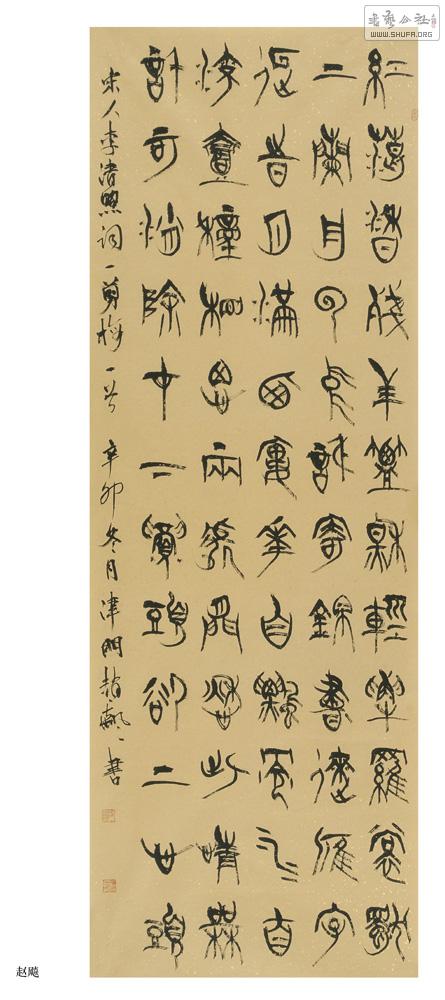 書藝公社
WWW.SHUFA.ORG
紅藕香殘玉簟秋輕解羅裳獨
上蘭舟雲中誰寄錦書來雁字
回時月滿西樓花自飄零水自
流一種相思兩處閒愁此情無
計可消除才下眉頭卻上心頭
宋人李清照詞一剪梅一首 辛卯冬月津門趙飈書
赵飚